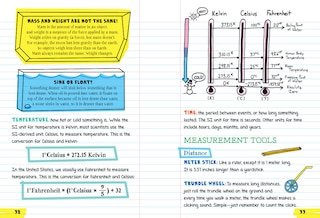 MASS AND WEIGHT ARE NOT THE SAME!
Mass is the amount of matter in an object,
and weight is a measure of the force applied by a mass.
Weight relies on gravity (a force), but mass doesn't.
For example, the moon has less gravity than the earth,
so objects weigh less there than on Earth.
Mass always remains the same. Weight changes.
SINK OR FLOAT?
TEMPERATURE: how hot or cold something is. While the
SI unit for temperature is Kelvin, most scientists use the
SI-derived unit, Celsius, to measure temperature. This is the
conversion for Celsius and Kelvin:
1°Celsius = 272.15 Kelvin
In the United States, we usually use Fahrenheit to measure
temperature. This is the conversion for Fahrenheit and Celsius:
1°Fahrenheit = (1°Celsius × 9/5) + 32
32
Kelvin Celsius Fahrenheit
HOT
COLD
Boiling Point
of Water
Human Body
Temperature
Room
Temperature
Freezing Point
of Water
Absolute
Zero
(K) (C) (F)
TIME: the period between events, or how long something
lasted. The SI unit for time is seconds. Other units for time
include hours, days, months, and years.
MEASUREMENT TOOLS
Distance
METER STICK: Like a ruler, except it is 1 meter long.
It is 3.37 inches longer than a yardstick.
TRUNDLE WHEEL: To measure long distances,
just roll the trundle wheel on the ground and
every time you walk a meter, the trundle wheel makes a
clicking sound. Simple—just remember to count the clicks.
33